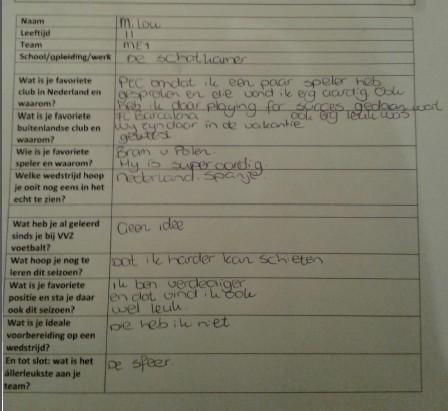 Naam Milou
Leeftijd 11
Team ME1
School/opleiding/werk De Schatkamer
Wat is je favoriete club in Nederland en waarom? PEC omdat ik een paar speler heb
gesproken en die vond ik erg aardig ook
heb ik daar playing for succes gedaan wat
ook erg leuk was
Wat is je favoriete buitenlandse club en waarom? FC Barcalona
wij zijn daar in de vakantie
geweest
Wie is je favoriete speler en waarom? Bram v Polen.
Hij is super aardig.
Welke wedstrijd hoop je ooit nog eens in het echt te zien? Nederland-Spanje
Wat heb je al geleerd sinds je bij VVZ voetbalt? Geen idee
Wat hoop je nog te leren dit seizoen? dat ik harder kan schieten
Wat is je favoriete positie en sta je daar ook dit seizoen? ik ben verdediger
en dat vind ik ook
wel leuk.
Wat is je ideale voorbereiding op een wedstrijd? die heb ik niet
En tot slot: wat is het állerleukste aan je team? De sfeer